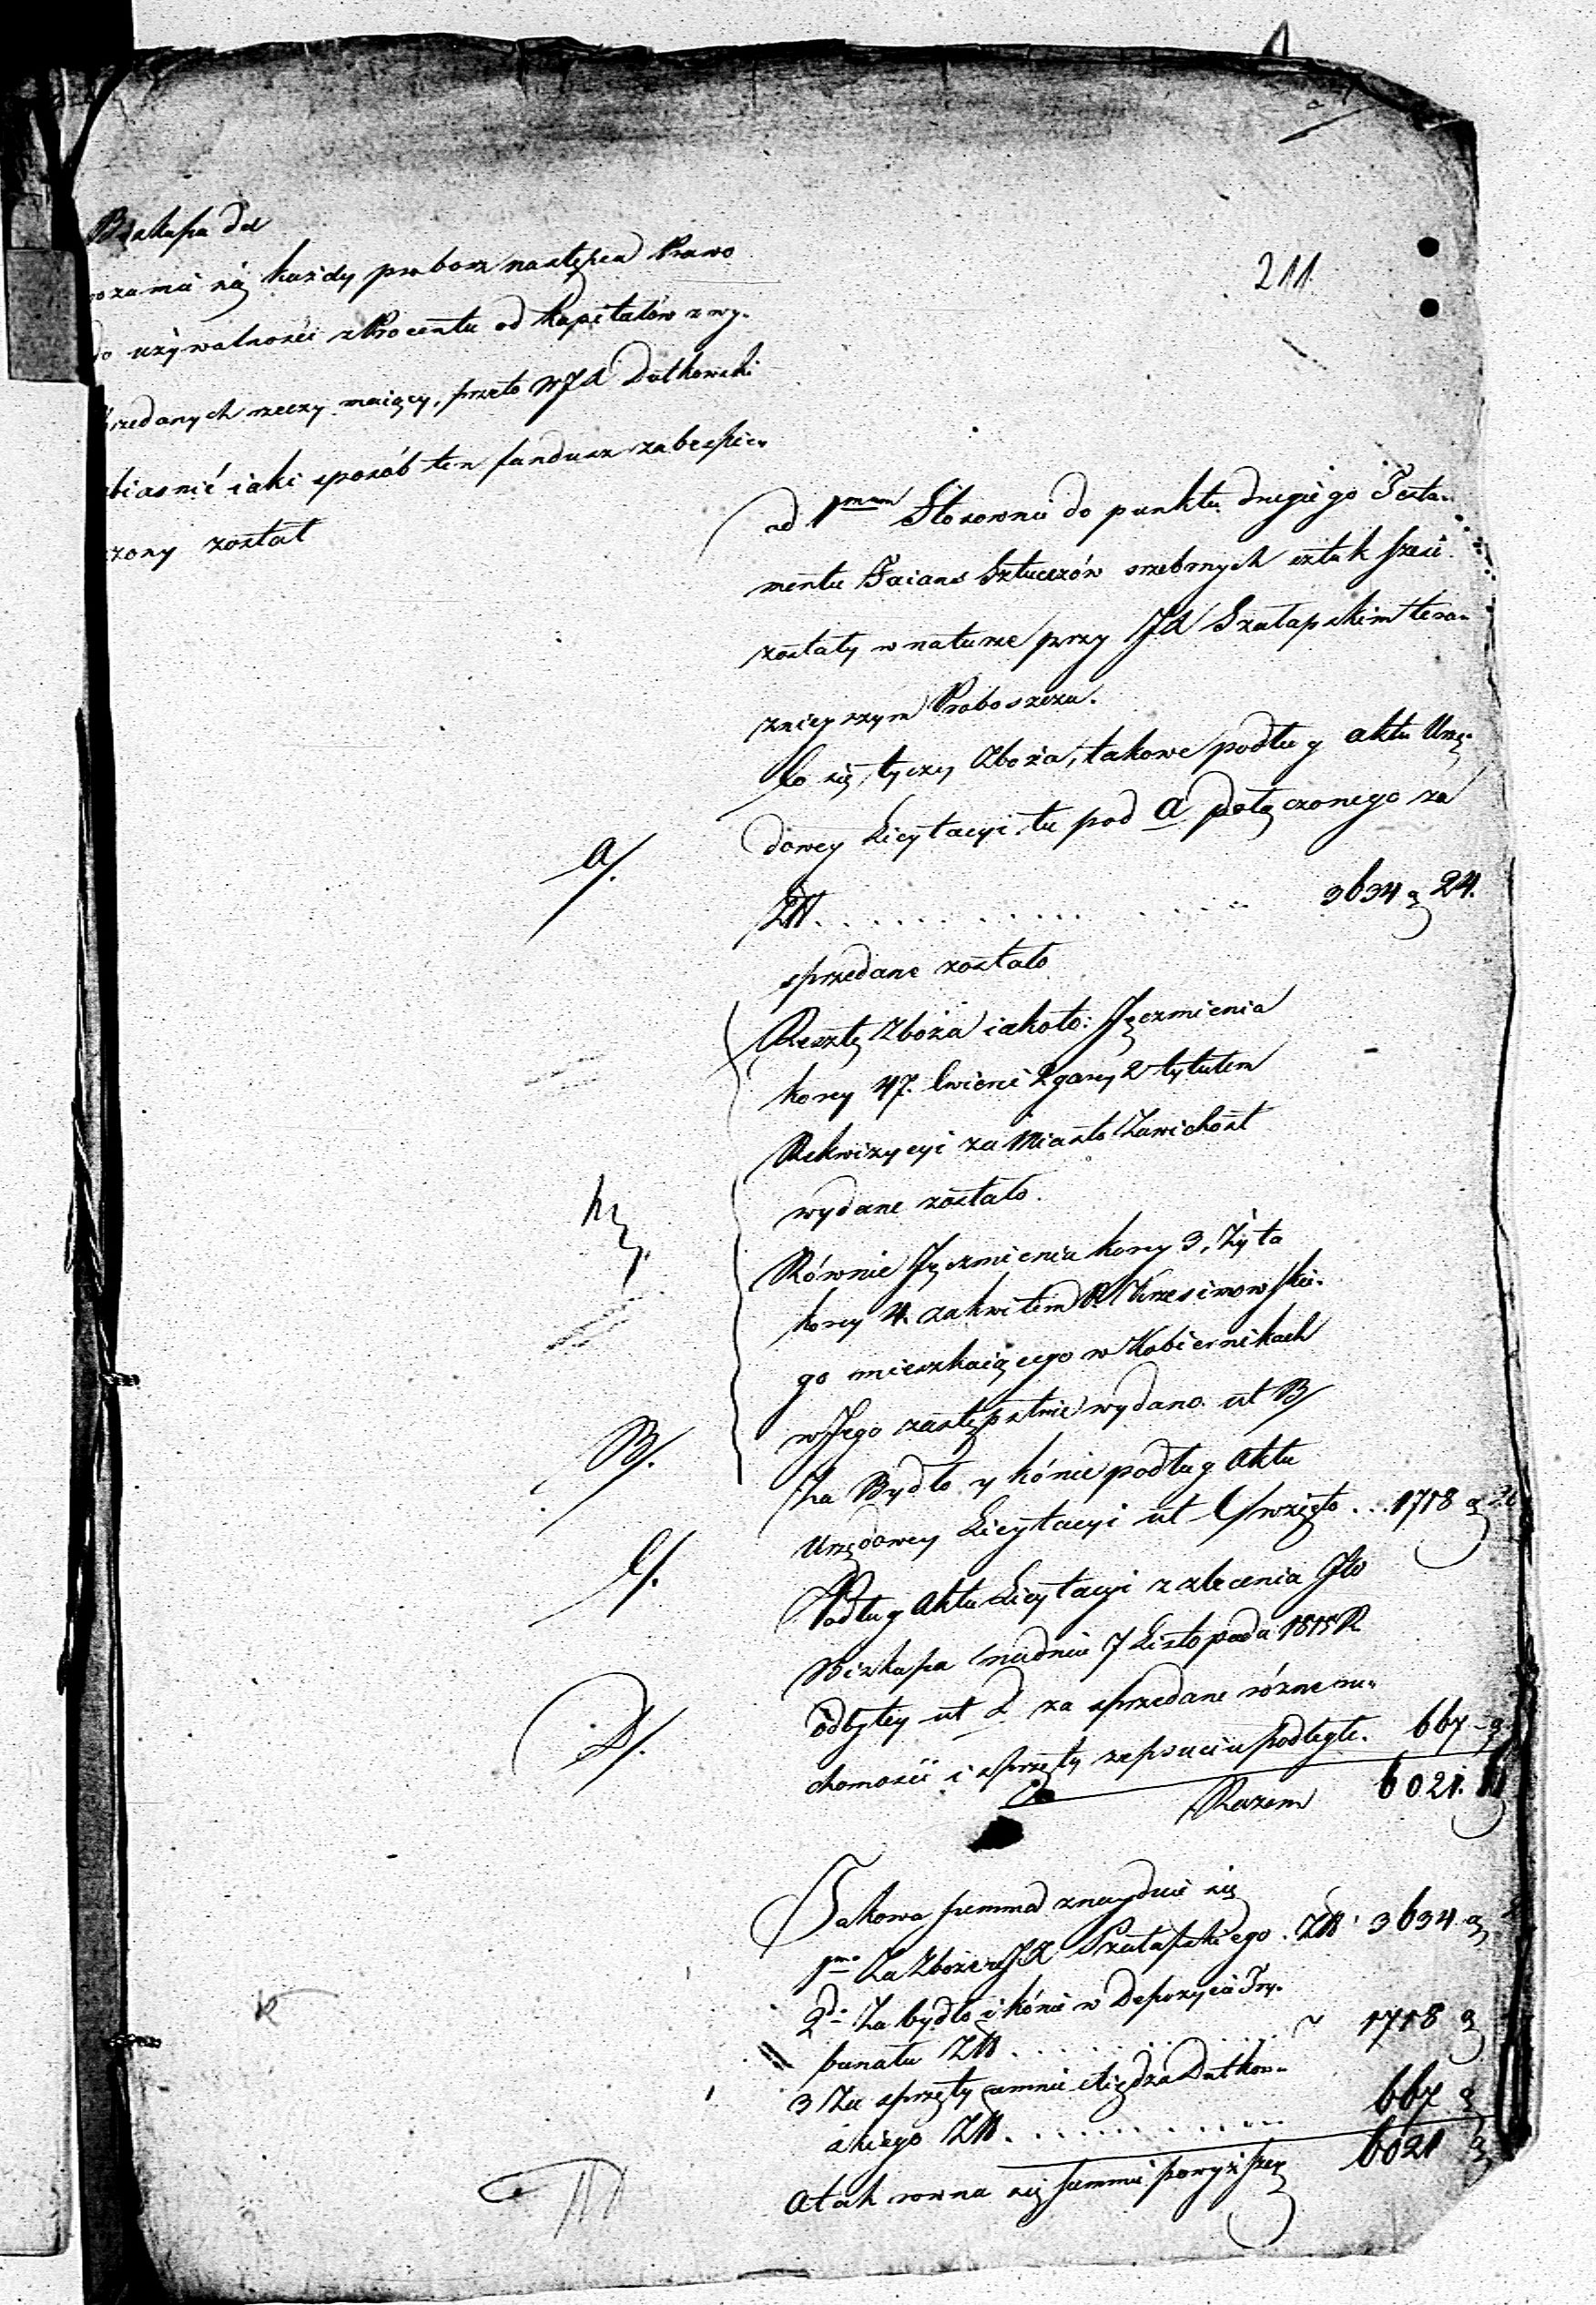 211
Biskupa Da
rozumie się każdy probosz następca Prawo
do używalności z Procentu od Kapitałów z wy-
przedanych rzeczy maiący, przeto WJX Dutkowski
obiasnić iaki sposób ten fundusz zabespie-
czony został
ad 1mum Stosownie do punktu drugiego Testa-
mentu Faians Sztuczów srebrnych sztuk sześć
zostały w naturze przy JX Szałapskim tera-
znieyszym Proboszczu.
Co się tyczy Zboża, takowe podług aktu Urzę-
dowey Licytacyi tu pod a połączonego za
a/.
ZłŧP. . . . . . . . . . 3634 g 24.
sprzedane zostało
Resztę Zboża iakoto: Jęczmienia
korcy 47. cwierć 2 garcy 2 tytułem
Rekwizycyi za Miasto Zawichost
wydane zostało.
Równie Jęczmienia korcy 3, Żyta
korcy 4. za kwitem Krzesimowskie-
go mieszkaiącego w Kobiernikach
w Jego zastępstwie wydano ut B/
B/.
Za Bydło y kónie podług Aktu
Urzędowey Licytacyi ut C/ wzięto . . 1718 g
C/.
Podług Aktu Licytacyi z zlecenia JW
Biskupa na dniu 7 Listopada 1815 R
odbytey ut D za sprzedane różne ru-
D/.
chomości i sprzęty zepsuciu podległe. 667 - g
Razem 6021.
Takowa summa znayduie się
1mo Za Zboże u JX Szałapskiego. Zł 3634 g
2do Za bydło i kónie w Depozycie Try-
bunału Zł . . . . . . 1718 g
3 Za sprzęty u mnie Xiędza Dutkow-
skiego Zł . . . . . . . . . 667 g
A tak rowna się summie powyższey 6021 g